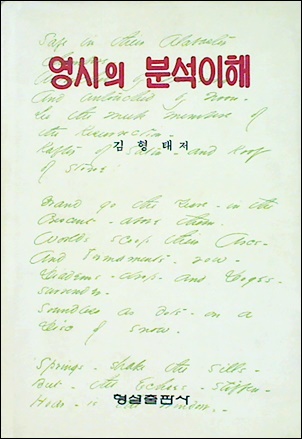 Safe in their Alabaster
영시의 분석이해
And untouched by Noon -
Lie the meek members of
the Resurrection -
김형태 저
Rafter of Satin - and Roof
of Stone!
Grand go the Years - in the
Crescent - above them -
Worlds scoop their Arcs -
And Firmaments - row -
Diadems - drop - and Doges -
surrender -
Soundless as Dots - on a
Disc of Snow.
Springs - shake the Sills -
But - the Echoes - stiffen -
Hoar - is the Window -
형설출판사